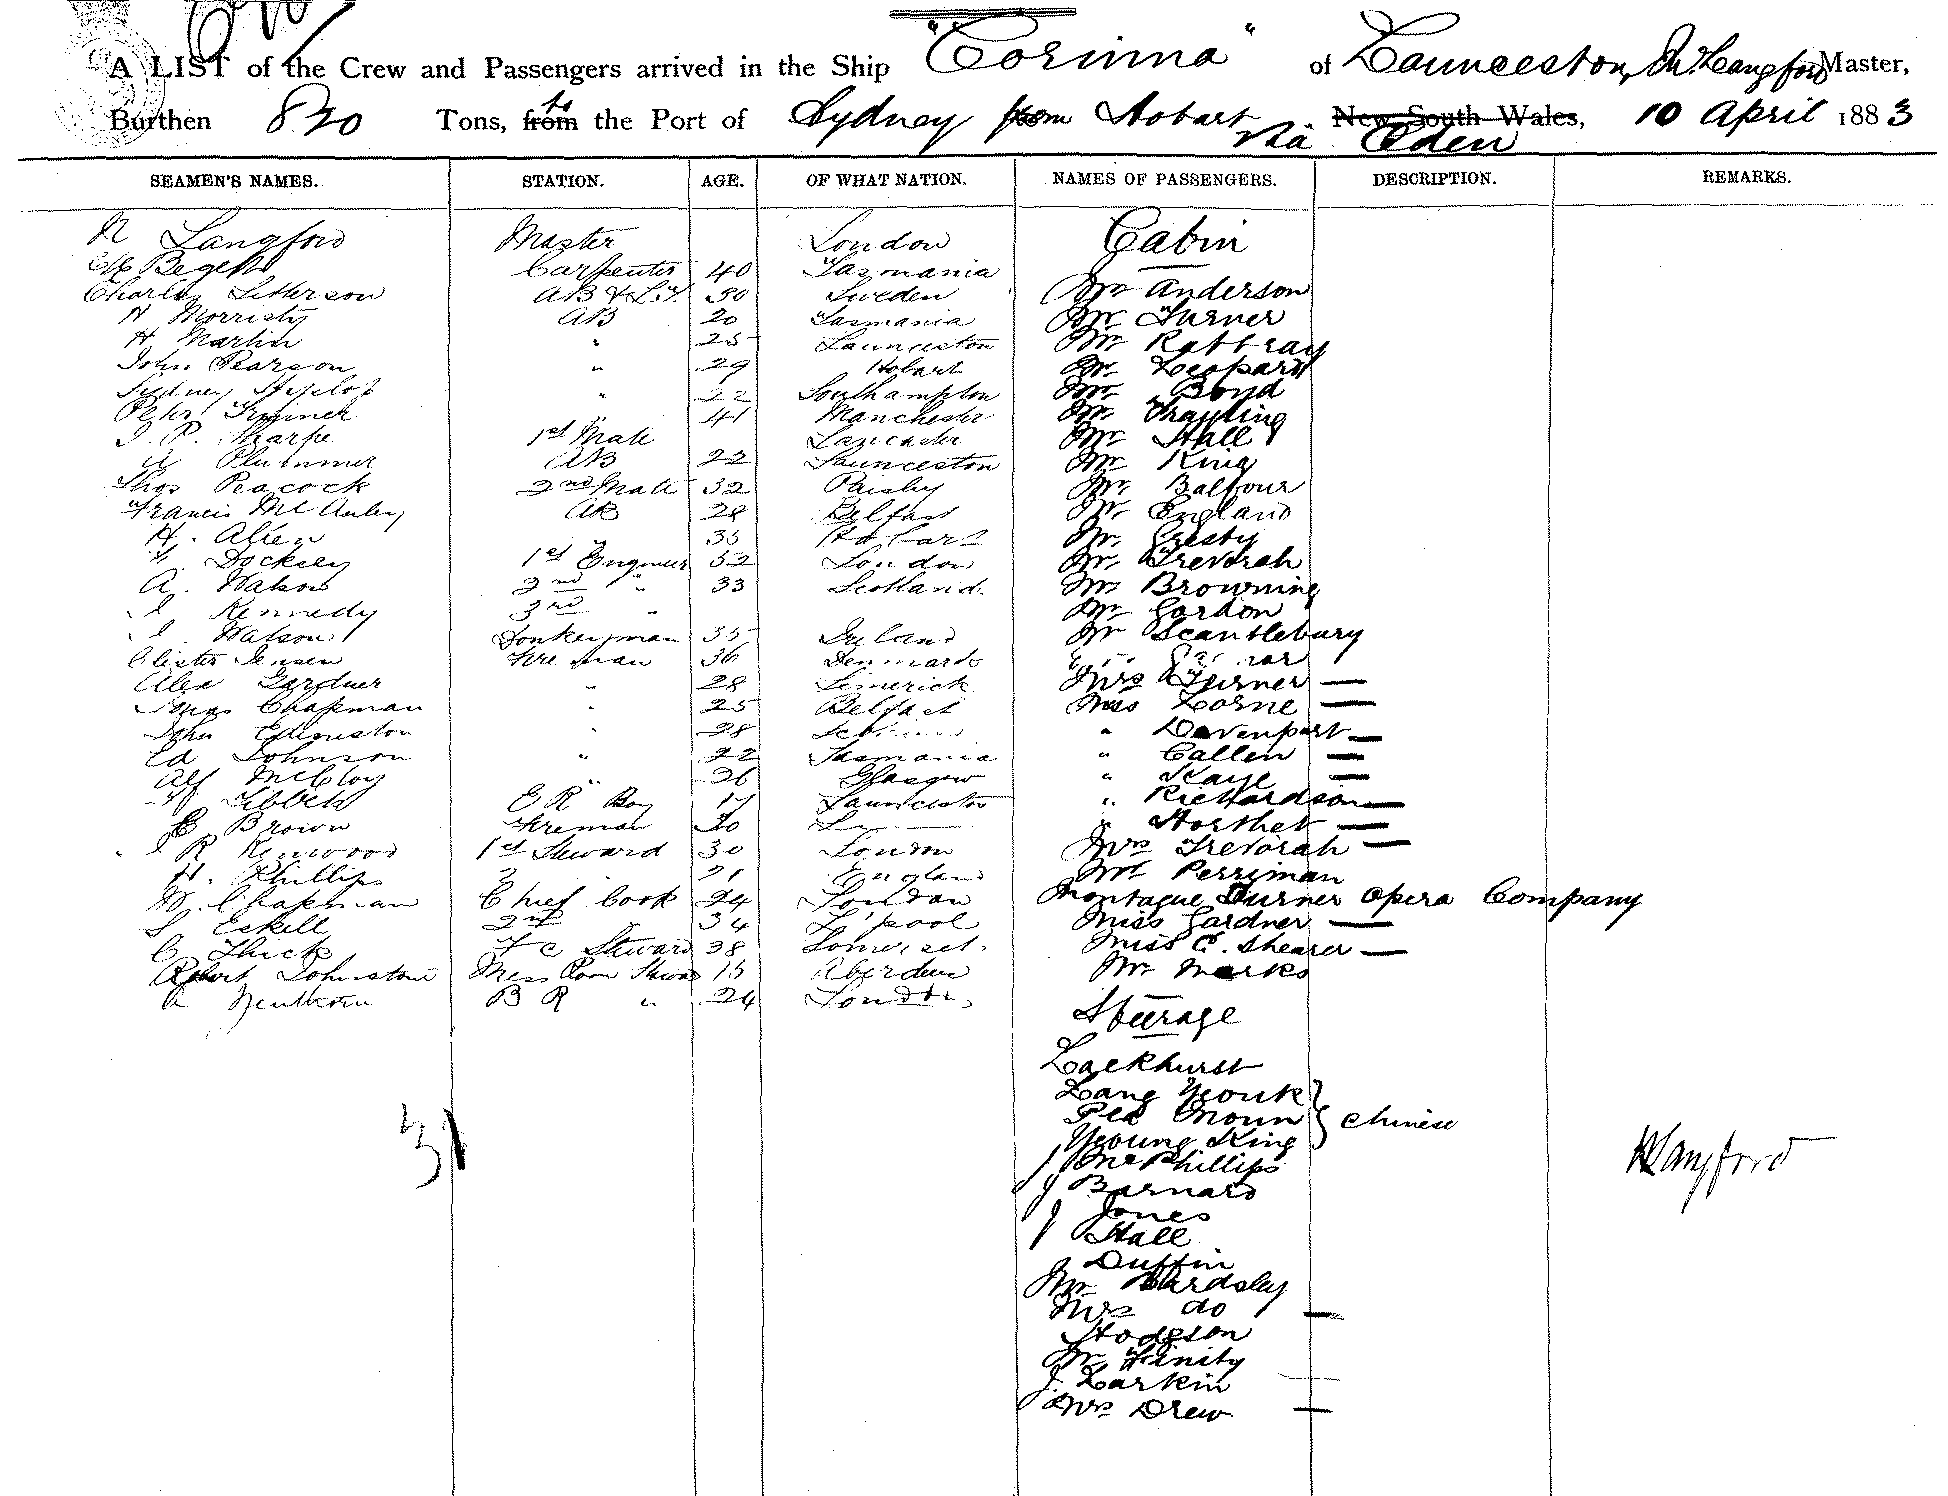 A LIST of the Crew and Passengers arrived in the Ship "Corinna" of Launceston, Langford Master,
Burthen 820 Tons, from to the Port of Sydney from Hobart New South Wales, 10 April 1883
via Eden
SEAMEN'S NAMES. STATION. AGE. OF WHAT NATION. NAMES OF PASSENGERS. DESCRIPTION. REMARKS.
Langford Master London Cabin
Carpenter 40 Tasmania
Charles Sweden Mr Anderson
H AB 20 Tasmania Mr Turner
H Martin " 25 Launceston Mr Rattray
John Pearson " 29 Hobart Mr Leopard
Sydney " 22 Southampton Mr Bond
41 Manchester Mr
Sharpe 1st Mate Lancaster Mr Hall
Plummer AB 22 Launceston Mr King
Thos Peacock 2nd Mate 32 Paisley Mr Balfour
Francis McAuley AB 28 Belfast Mr England
H. Allen 35 Hobart Mr Gresty
Docksey 1st Engineer 52 London Mr Trevorah
A. Watson 2nd " 33 Scotland. Mr Browning
Kennedy 3rd " Mr Gordon
Watson Donkeyman 35 Ireland Mr Scantlebury
Jensen Fireman 36 Denmark
Alex Gardner " 28 Limerick Mrs Turner —
Chapman " 25 Belfast Miss Lorne —
John Edmiston " 28 " Davenport —
Ed Johnson " 22 Tasmania " Callen —
Alf McCloy " 26 Glasgow " Kaye —
Tibbett E R Boy 17 Launceston " Richardson —
Brown Fireman —
R Kenwood 1st Steward 30 London Mrs Trevorah —
H. Phillips 2 21 England Perryman
Chapman Chief Cook 24 London Montague Turner Opera Company
S Eskell 2nd " 34 L'pool Miss Gardner —
C Thick F C Steward 38 Somerset. Miss C. Shearer —
Robert Johnston Mess Room 15 Aberdeen Mr Marks
B R " 24 London
Steerage
Lackhurst
Lang
Moun } Chinese
Young King
31
Phillips
Langford
J Barnard
J Jones
Hall
J Duffin
Mr Bardsley
Mrs do —
Hodgson
Mr Finity
J. Larkin —
Mrs Drew —